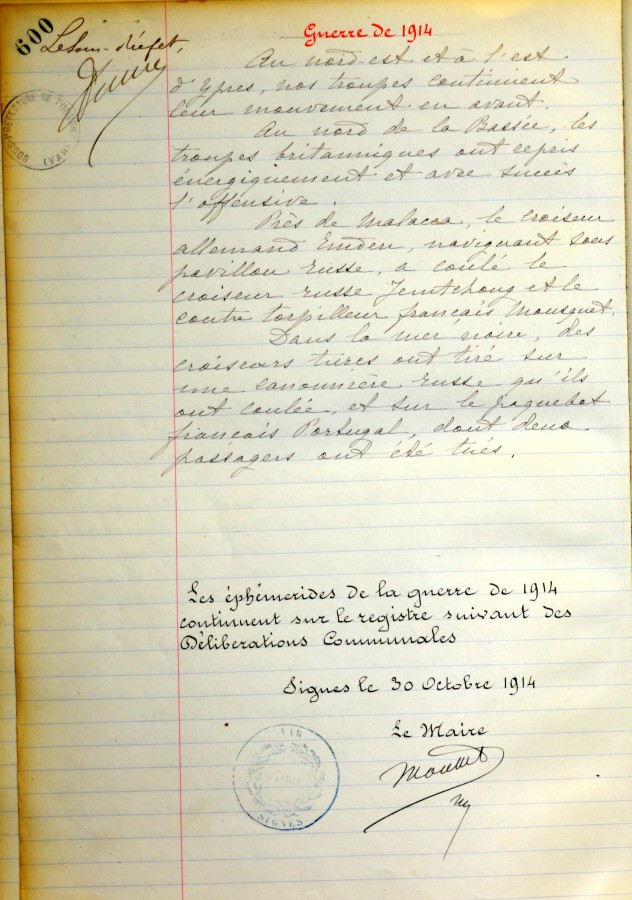 600
Le Sous-Préfet,
SOUS-PRÉFECTURE DE TOULON
(VAR)
Guerre de 1914
Au nord-est et à l'est
d'Ypres, nos troupes continuent
leur mouvement en avant.
Au nord de la Bassée, les
troupes britanniques ont repris
énergiquement et avec succès
l'offensive.
Près de Malacca, le croiseur
allemand Emden, naviguant sous
pavillon russe, a coulé le
croiseur russe Jemtchoug et le
contre torpilleur français Mousquet.
Dans la mer noire, des
croiseurs turcs ont tiré sur
une canonnière russe qu'ils
ont coulée, et sur le paquebot
français Portugal, dont deux
passagers ont été tués.
Les éphémerides de la guerre de 1914
continuent sur le registre suivant des
Déliberations Communales
Signes le 30 Octobre 1914
Le Maire
VAR
SIGNES